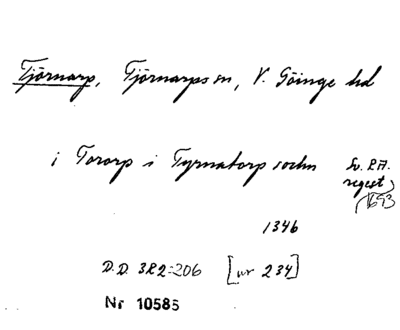 Tjörnarp, Tjörnarps sn, V. Göinge hd
i Tororp i Tyrnatorp sochn Sv. R.A.
regest,
1693
1346
D.D. 3R2:206 [nr 234]
Nr 10585